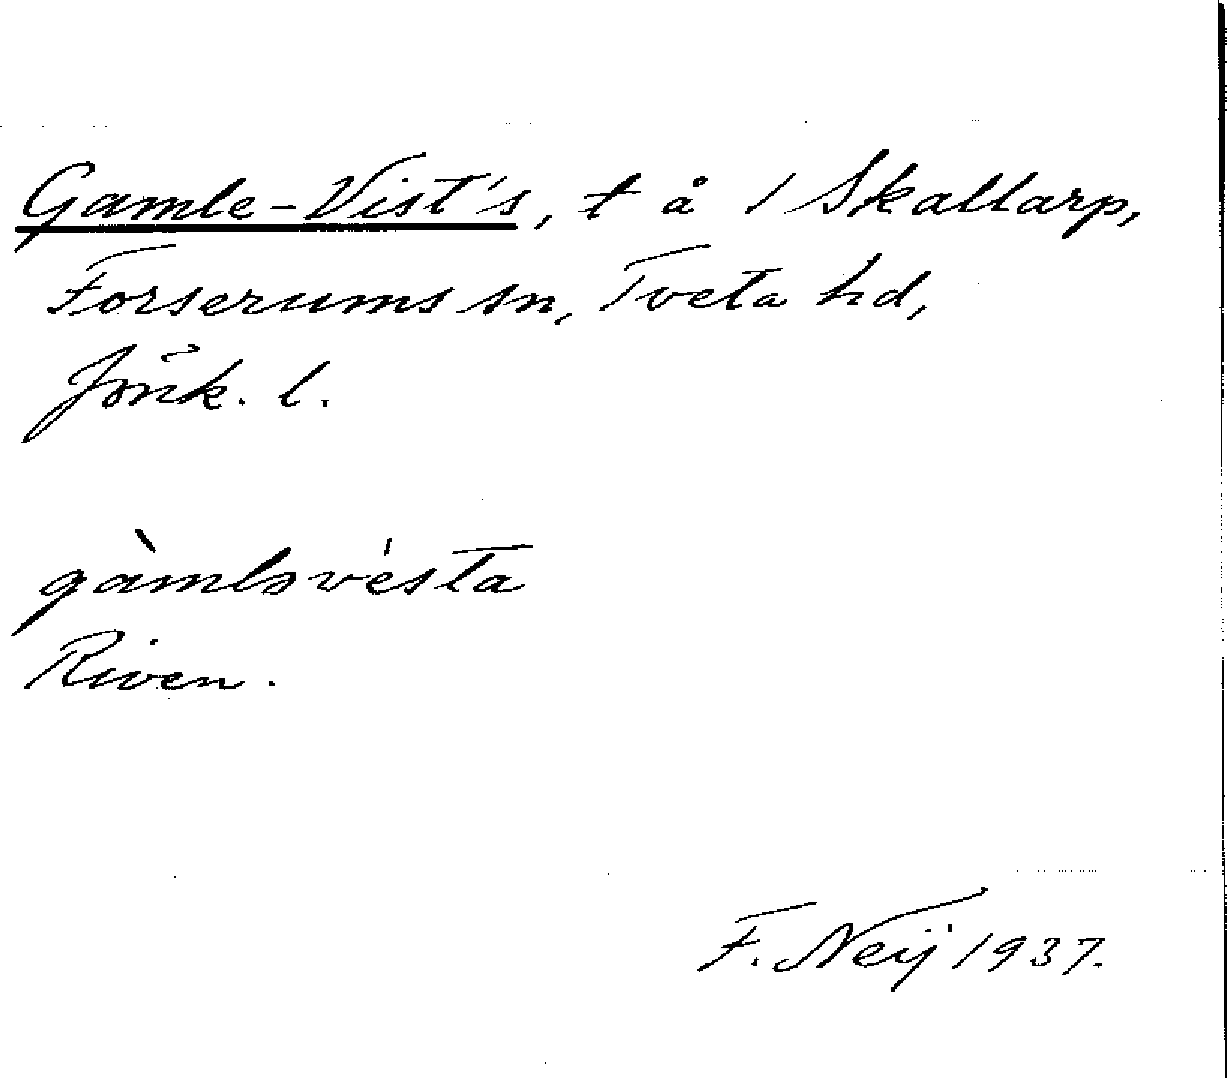 Gamle-Vist's, t å 1 Skallarp,
Forserums sn, Tveta hd,
Jönk. l.
gàmləvésta
Riven.
F. Neij 1937.